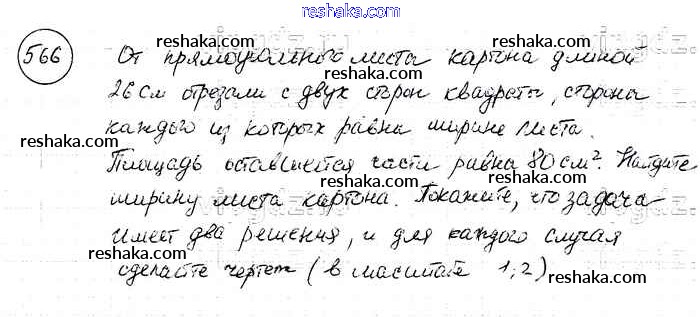 reshaka.com
566 От прямоугольного листа картона длиной
26 см отрезали с двух сторон квадраты, сторона
каждого из которых равна ширине листа.
Площадь оставшейся части равна 80 см². Найдите
ширину листа картона. Покажите, что задача
имеет два решения, и для каждого случая
сделайте чертеж (в масштабе 1:2)
reshaka.com
reshaka.com
reshaka.com
reshaka.com
reshaka.com
reshaka.com
reshaka.com
reshaka.com
reshaka.com
reshaka.com
reshaka.com